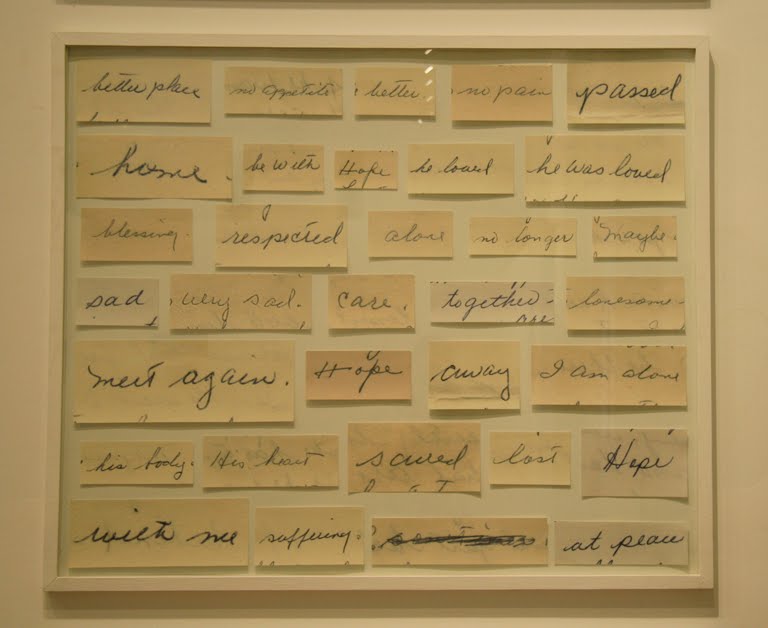 better place no appetite better no pain passed
home be with Hope he loved he was loved
blessing. respected alone no longer Maybe.
sad very sad. care. together lonesome
meet again. Hope away I am alone
his body. His heart scared lost Hope
with me suffering. at peace